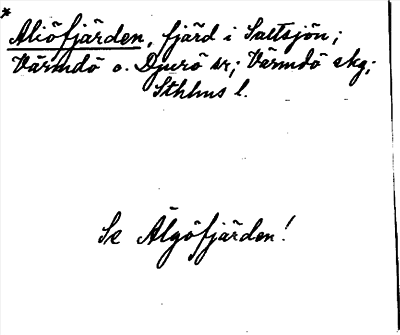 * Aliöfjärden, fjärd i Saltsjön;
Värmdö o. Djurö sr; Värmdö skg;
Sthlms l.
Se Älgöfjärden!